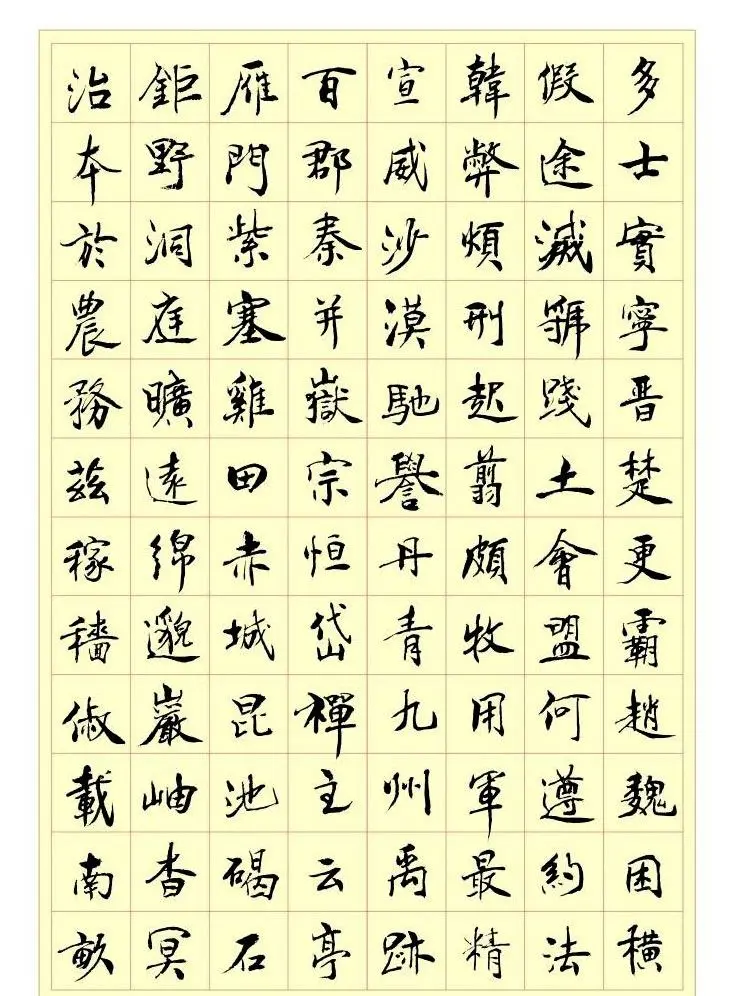 多士實寧晋楚更霸趙魏困橫
假途滅虢踐土會盟何遵約法
韓弊煩刑起翦頗牧用軍最精
宣威沙漠馳譽丹青九州禹跡
百郡秦并嶽宗恒岱禪主云亭
雁門紫塞雞田赤城昆池碣石
鉅野洞庭曠遠綿邈巖岫杳冥
治本於農務茲稼穡俶載南畝